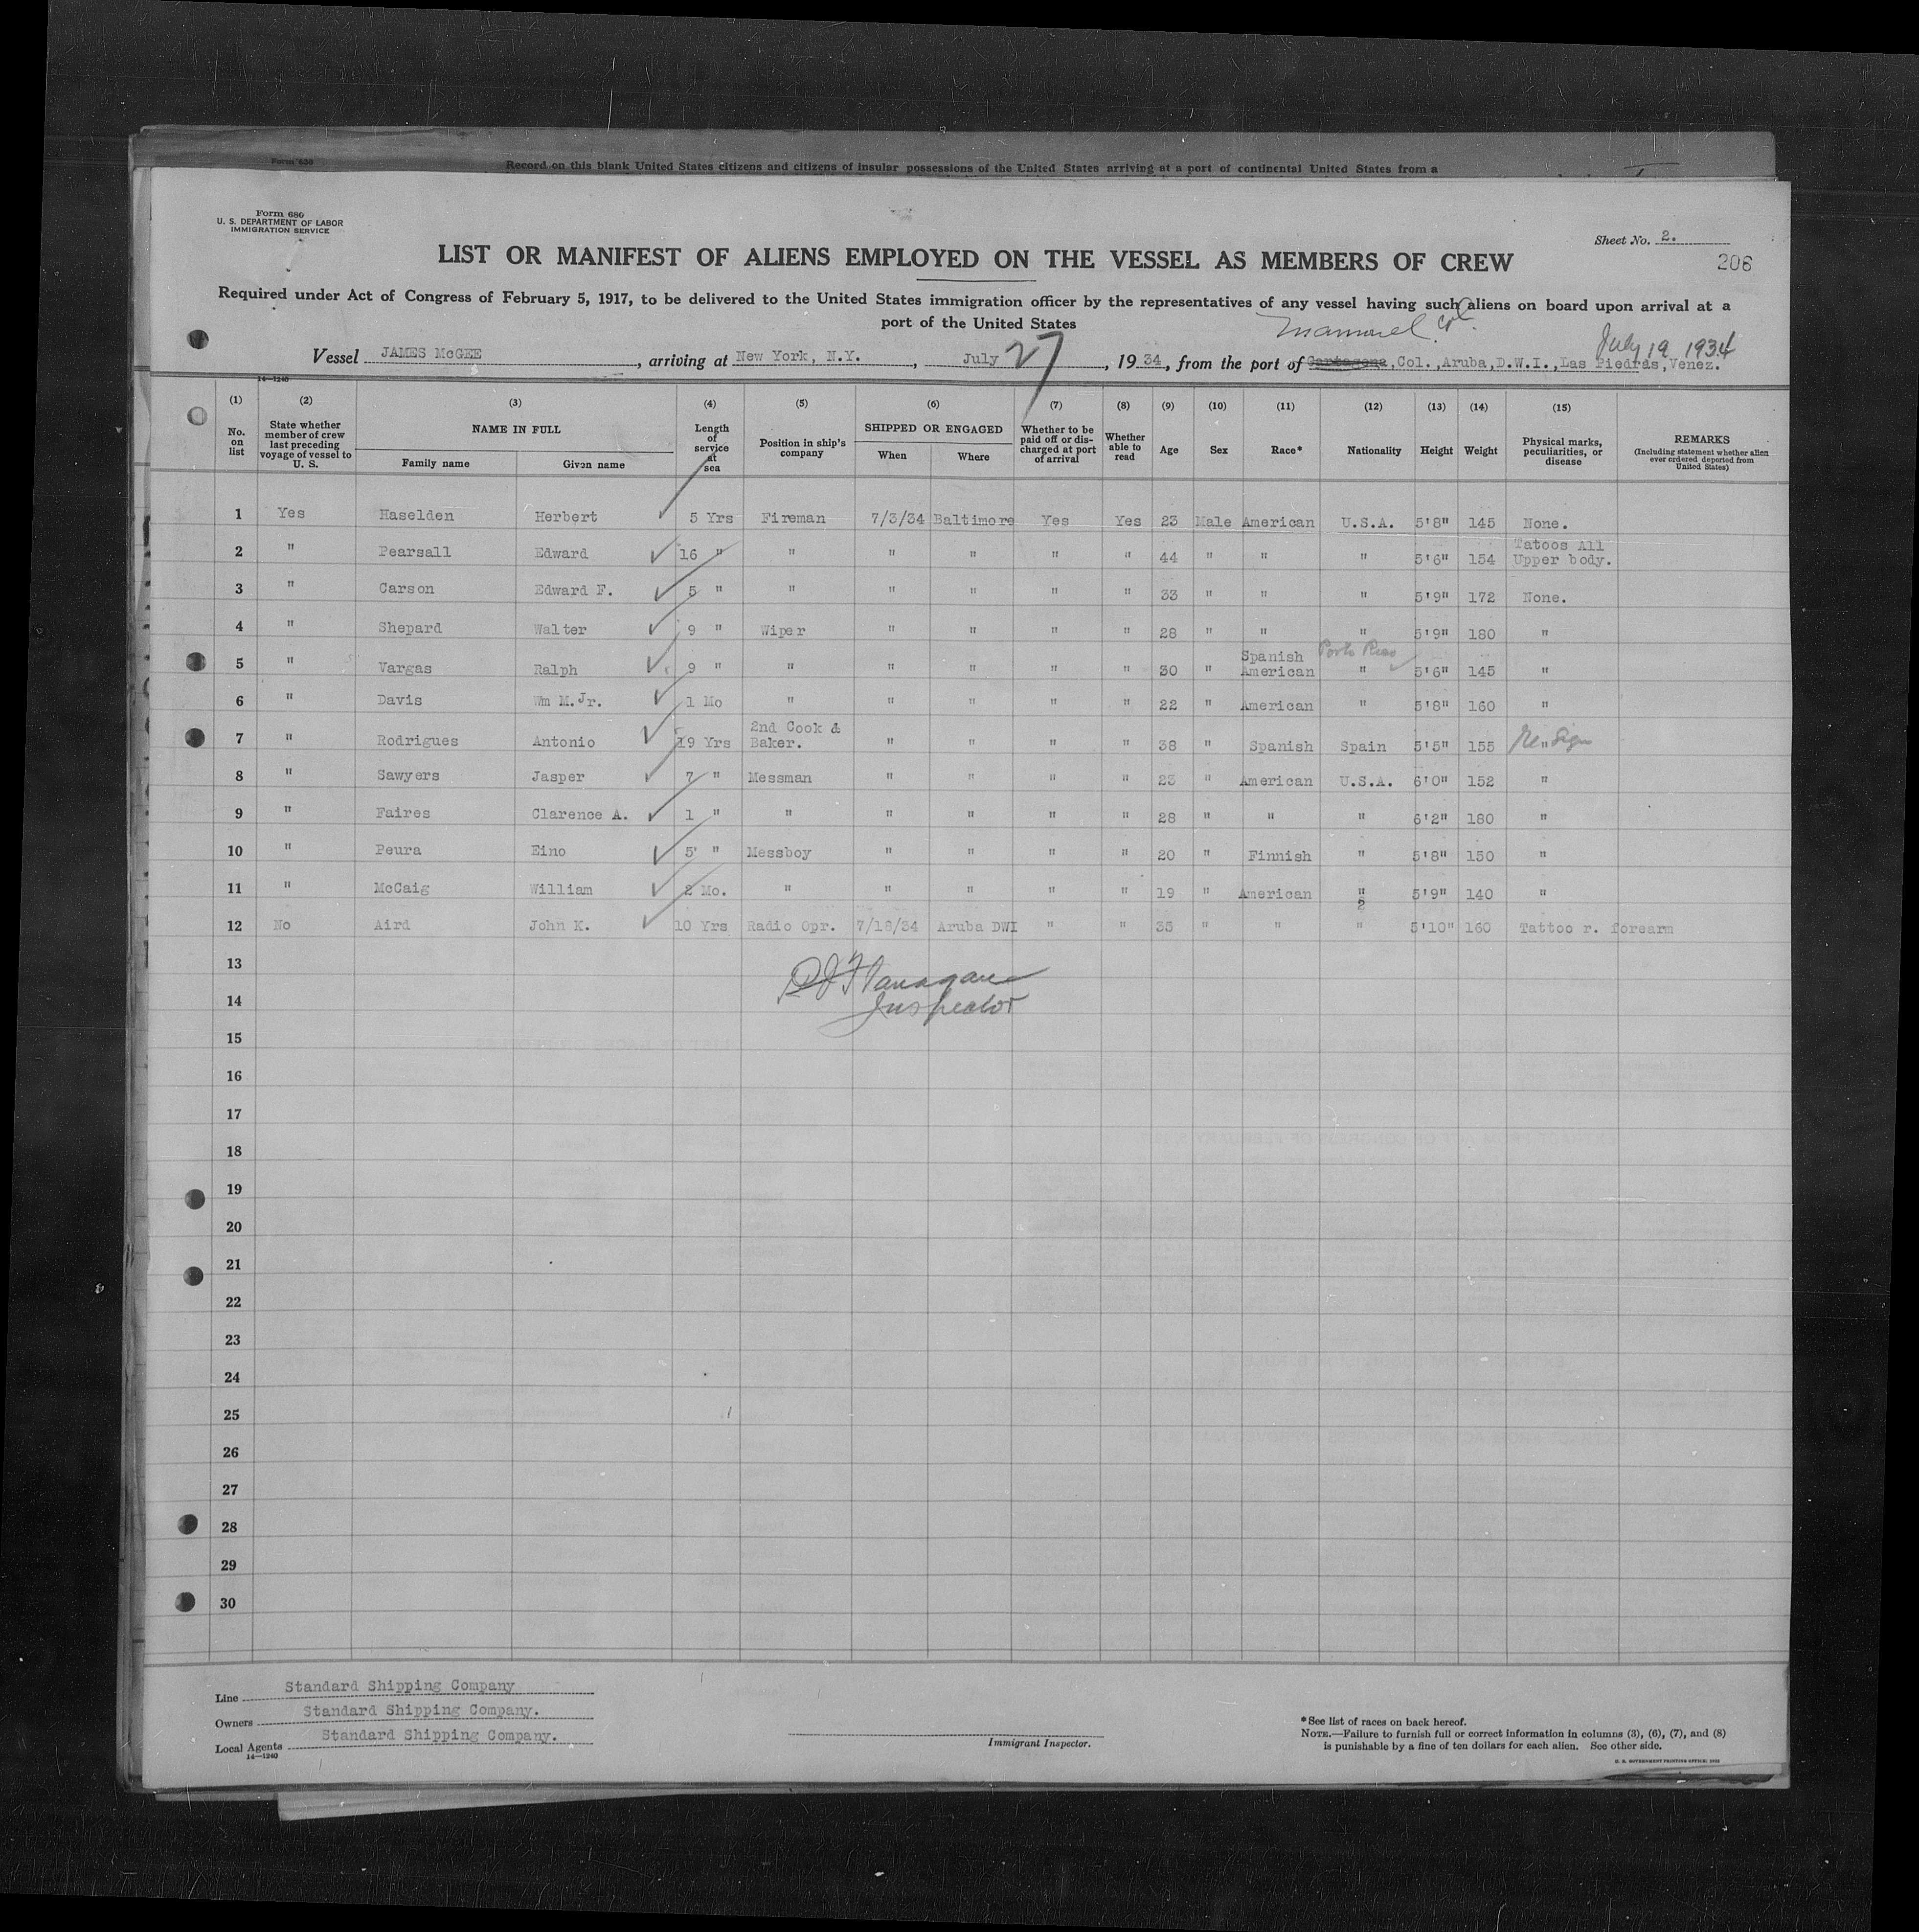 Form 630
Record on this blank United States citizens and citizens of insular possessions of the United States arriving at a port of continental United States from a
Form 680
U. S. DEPARTMENT OF LABOR
IMMIGRATION SERVICE
Sheet No. 2.
LIST OR MANIFEST OF ALIENS EMPLOYED ON THE VESSEL AS MEMBERS OF CREW
206
Required under Act of Congress of February 5, 1917, to be delivered to the United States immigration officer by the representatives of any vessel having such aliens on board upon arrival at a
port of the United States
Mamonel Col. July 19 1934
Vessel JAMES McGEE, arriving at New York, N.Y., July 27, 1934, from the port of Cartagena, Col., Aruba, D.W.I., Las Piedras, Venez.
14—1240
(1) (2) (3) (4) (5) (6) (7) (8) (9) (10) (11) (12) (13) (14) (15)
No. on list | State whether member of crew last preceding voyage of vessel to U. S. | NAME IN FULL | Family name | Given name | Length of service at sea | Position in ship's company | SHIPPED OR ENGAGED | When | Where | Whether to be paid off or discharged at port of arrival | Whether able to read | Age | Sex | Race* | Nationality | Height | Weight | Physical marks, peculiarities, or disease | REMARKS (Including statement whether alien ever ordered deported from United States)
1 Yes Haselden Herbert 5 Yrs Fireman 7/3/34 Baltimore Yes Yes 23 Male American U.S.A. 5'8" 145 None.
2 " Pearsall Edward 16 " " " " " " 44 " " " 5'6" 154 Tatoos All Upper body.
3 " Carson Edward F. 5 " " " " " " 33 " " " 5'9" 172 None.
4 " Shepard Walter 9 " Wiper " " " " 28 " " " 5'9" 180 "
5 " Vargas Ralph 9 " " " " " " 30 " Spanish American Porto Rico " 5'6" 145 "
6 " Davis Wm M. Jr. 1 Mo " " " " " 22 " American " 5'8" 160 "
7 " Rodrigues Antonio 19 Yrs 2nd Cook & Baker. " " " " 38 " Spanish Spain 5'5" 155 "
8 " Sawyers Jasper 7 " Messman " " " " 23 " American U.S.A. 6'0" 152 "
9 " Faires Clarence A. 1 " " " " " " 28 " " " 6'2" 180 "
10 " Peura Eino 5 " Messboy " " " " 20 " Finnish " 5'8" 150 "
11 " McCaig William 2 Mo. " " " " " 19 " American " 5'9" 140 "
2
12 No Aird John K. 10 Yrs Radio Opr. 7/18/34 Aruba DWI " " 35 " " " 5'10" 160 Tattoo r. forearm
13
Flanagan
14
Inspector
15
16
17
18
19
20
21
22
23
24
25
26
27
28
29
30
Line Standard Shipping Company
Owners Standard Shipping Company.
Local Agents Standard Shipping Company.
14—1240
Immigrant Inspector.
*See list of races on back hereof.
NOTE.—Failure to furnish full or correct information in columns (3), (6), (7), and (8)
is punishable by a fine of ten dollars for each alien. See other side.
U. S. GOVERNMENT PRINTING OFFICE: 1932